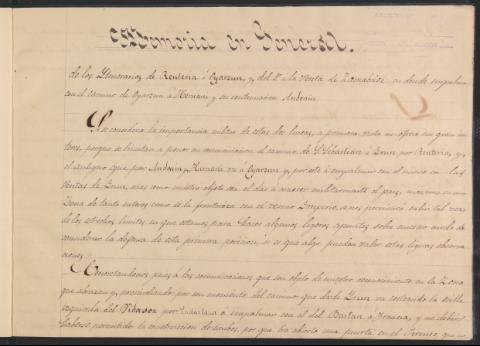 Memoria en General.
de los Ytinerarios de Renteria á Oyarzun, y del 2º á la Venta de
con el camino de Oyarzun á Hernani y su continuacion Andoain
Si se considera la importancia militar de estas dos lineas, á primera vista no ofrece un gran in
teres, porque se limitan á poner en comunicacion el camino de Sn Sebastian á Irun por Renteria, y
el antiguo que por Andoain, Hernani va á Oyarzun y, por este á empalmar con el nuevo en las
Ventas de Irun, mas como nuestro objeto es el dar á conocer militarmente el pais, maxime en una
Zona de tanto interes como es la fronteriza con el vecino Imperio, se nos permitirá salir tal vez
de los estrechos limites en que estamos para hacer algunos ligeros apuntes sobre nuestro modo de
considerar la defensa de esta primera posicion, si es que algo puedan valer estas ligeras observa
ciones.
pues á las comunicaciones que son objeto de nuestro reconocimiento en la Zona
que abrazan y, prescindiendo por un momento del camino que desde Irun va costeando la orilla
izquierda del Vidasoa por á empalmar con el del Bastan á Francia, y no debia
haberse permitido la construccion de ambos, por que ha abierto una puerta en el Pirineo que no